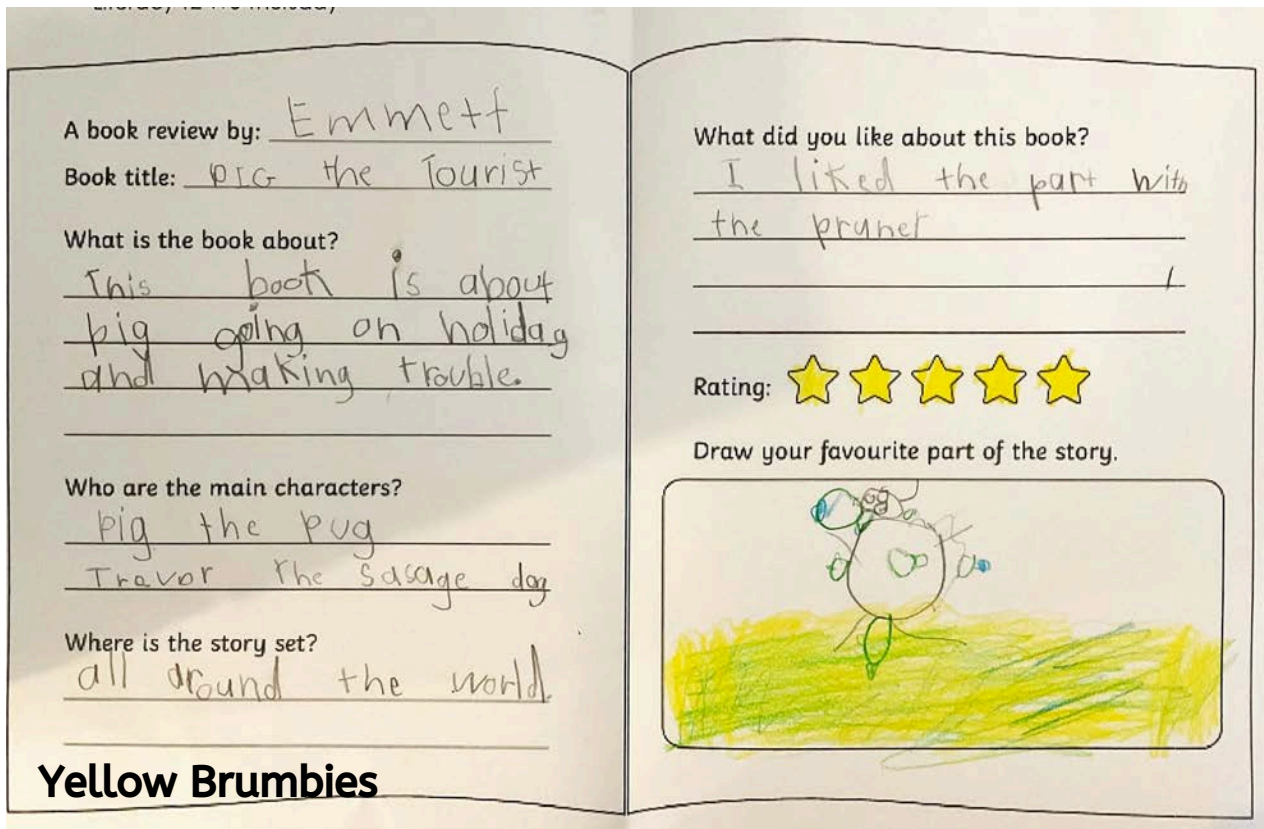 A book review by: Emmett
Book title: PIG the Tourist
What is the book about?
This book is about
pig going on holiday
and making trouble.
Who are the main characters?
pig the pug
Trevor the sasage dog
Where is the story set?
all around the world.
Yellow Brumbies
What did you like about this book?
I liked the part with
the pruner
Rating:
Draw your favourite part of the story.